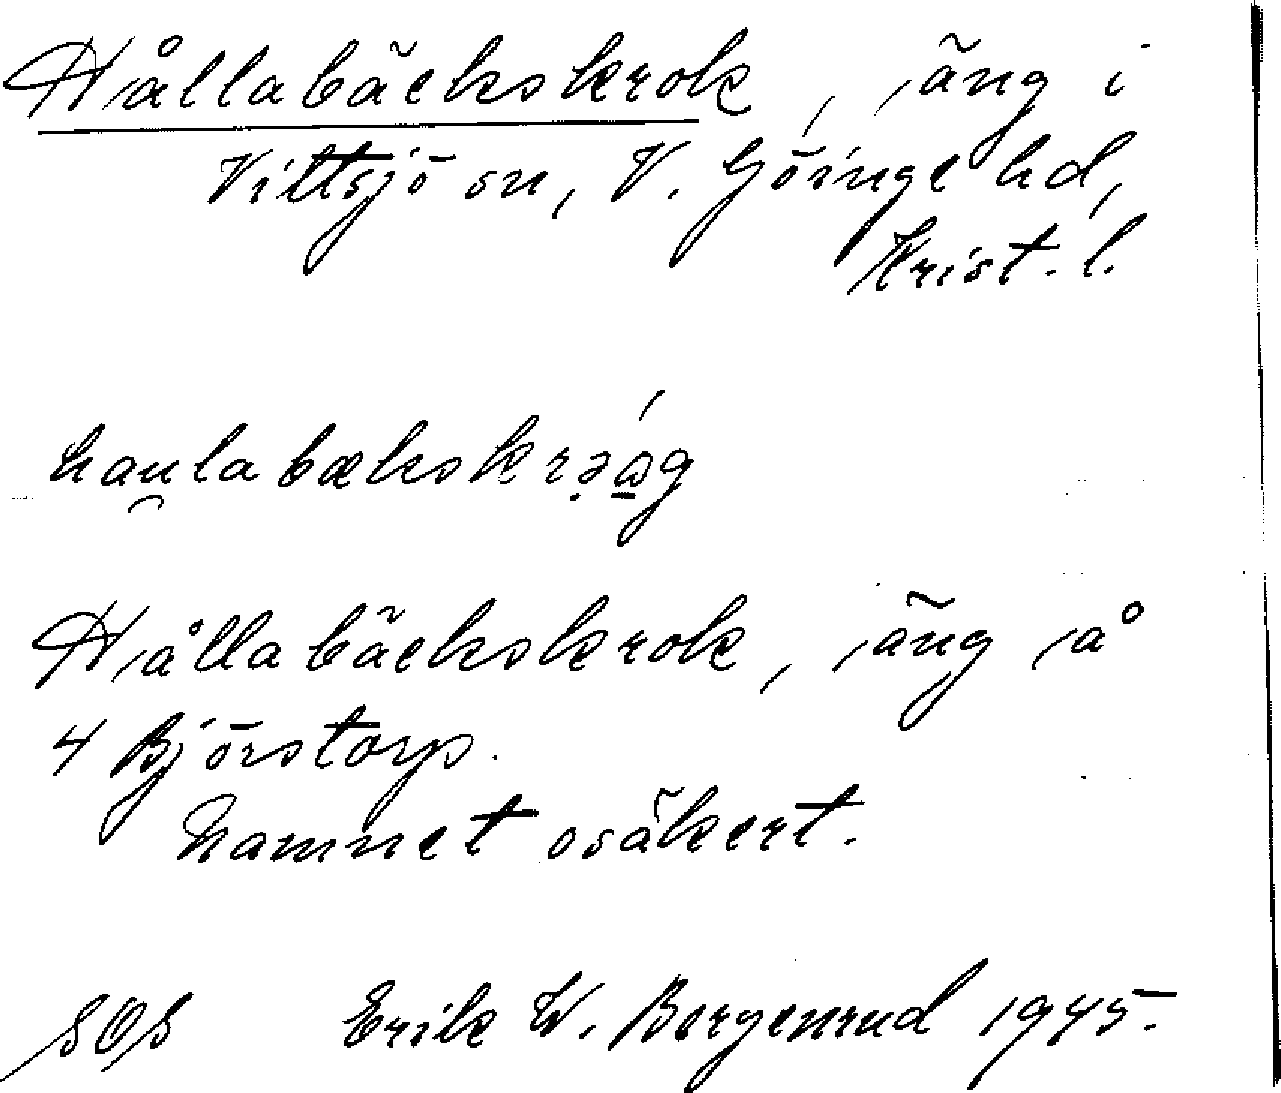 Hållabäckskrok, äng i
Vittsjö sn, V. Göinge hd,
Krist. l.
hau̯labækskrə̣á̱g
Hållabäckskrok, äng å
4 Björstorp.
Namnet osäkert.
SOS Erik W. Bergenrud 1945.